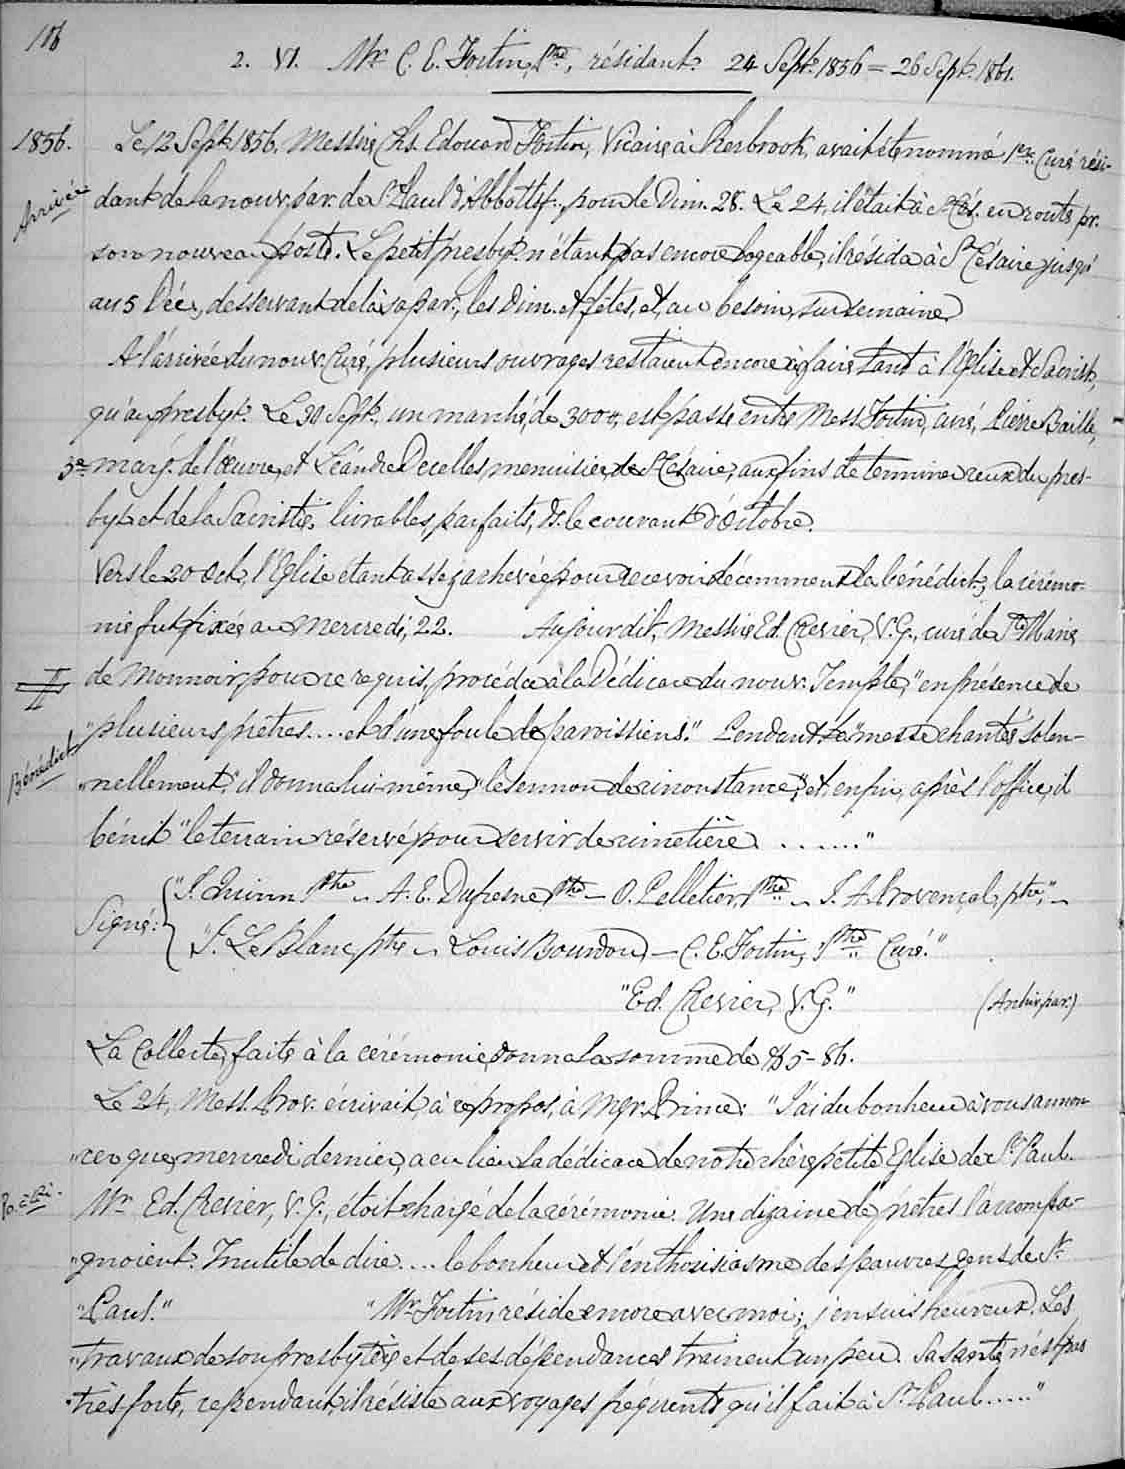 106
2. VI. Mr C. E. Fortin, Ptre, résidant. 24 Sept. 1856 = 26 Sept. 1861.
1856. Le 12 Sept. 1856, Messire Chs. Edouard Fortin, Vicaire à Sherbrook, avait été nommé 1er Curé rési-
Arrivée
dant de la nouv. par. de St Paul d'Abbottsf., pour le Dim. 28. Le 24, il était à St Cés. en route pr.
son nouveau poste. Le petit presbyt. n'étant pas encore logeable, il résida à St Césaire jusqu'
au 5 Déc., desservant de là sa par., les Dim. et fêtes, et, au besoin, sur semaine.
A l'arrivée du nouv. Curé, plusieurs ouvrages restaient encore à faire tant à l'Eglise et Sacrist.,
qu'au presbyt. Le 30 Sept., un marché, de 300#, est passé entre Mess. Fortin, curé, Pierre Baille,
3e marg. de l'œuvre, et Léandre Decelles, menuisier, de St Césaire, aux fins de terminer ceux du pres-
byt. et de la Sacristie, livrables, parfaits, ds. le courant d'Octobre.
Vers le 20 Oct., l'Eglise étant assez achevée pour recevoir décemment la bénédict., la cérémo-
nie fut fixée au Mercredi, 22. Au jour dit, Messire Ed. Crevier, V. G., curé de Ste Marie
II
de Monnoir, pour ce requis, procéda à la Dédicace du nouv. Temple, "en présence de
"plusieurs prêtres.... et d'une foule de paroissiens." Pendant la "messe chantée solen-
Bénédict.
"nellement," il donna lui-même, "le sermon de circonstance," et, enfin, après l'office, il
bénit "le terrain réservé pour servir de cimetière ......"
Signé: { "J. Quinn Ptre – A. E. Dufresne Ptre – O. Pelletier, Ptre – J. A. Provençal, ptre," –
"J. LeBlanc, ptre – Louis Bourdon – C. E. Fortin, Ptre Curé."
"Ed. Crevier, V. G." (Archiv. par.)
La Collecte, faite à la cérémonie, donna la somme de $5-86.
Le 24, Mess. Prov. écrivait, à ce propos, à Mgr. Prince: "J'ai du bonheur à vous annon-
"cer que, mercredi dernier, a eu lieu la dédicace de notre chère petite Eglise de St Paul.
Mr Ed. Crevier, V. G., étoit chargé de la cérémonie. Une dizaine de prêtres l'accompa-
"gnoient. Inutile de dire.... le bonheur et l'enthousiasme des pauvres gens de St
"Paul." "Mr Fortin réside encore avec moi; j'en suis heureux. Les
"travaux de son presbytère et de ses dépendances trainent un peu. Sa santé n'est pas
"très forte, cependant, il résiste aux voyages fréquents qu'il fait à St Paul....."